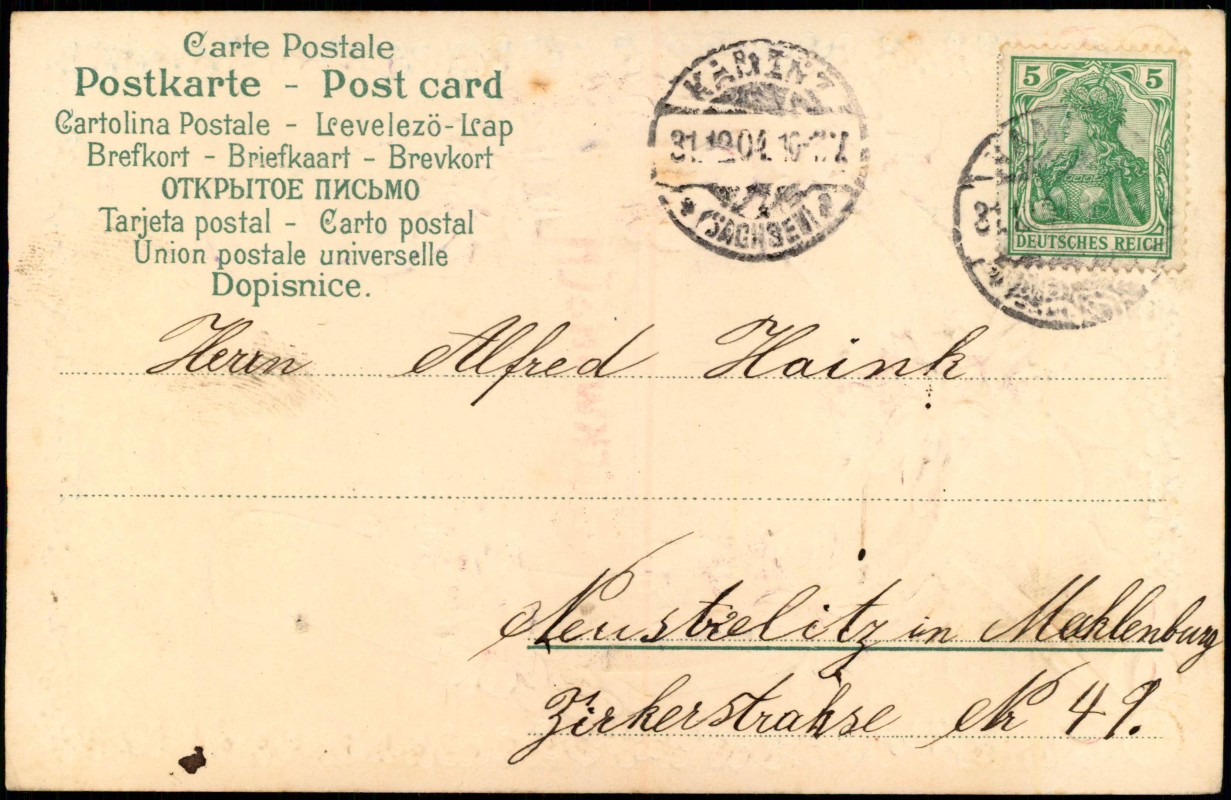 Carte Postale
Postkarte - Post card
Cartolina Postale - Levelezö-Lap
Brefkort - Briefkaart - Brevkort
ОТКРЫТОЕ ПИСЬМО
Tarjeta postal - Carto postal
Union postale universelle
Dopisnice.
KAMENZ
31.12.04. 
(SACHSEN)
5 5
DEUTSCHES REICH
Herrn Alfred Haink
Neustrelitz in Meklenburg
Zirkerstrahse Nr 49.